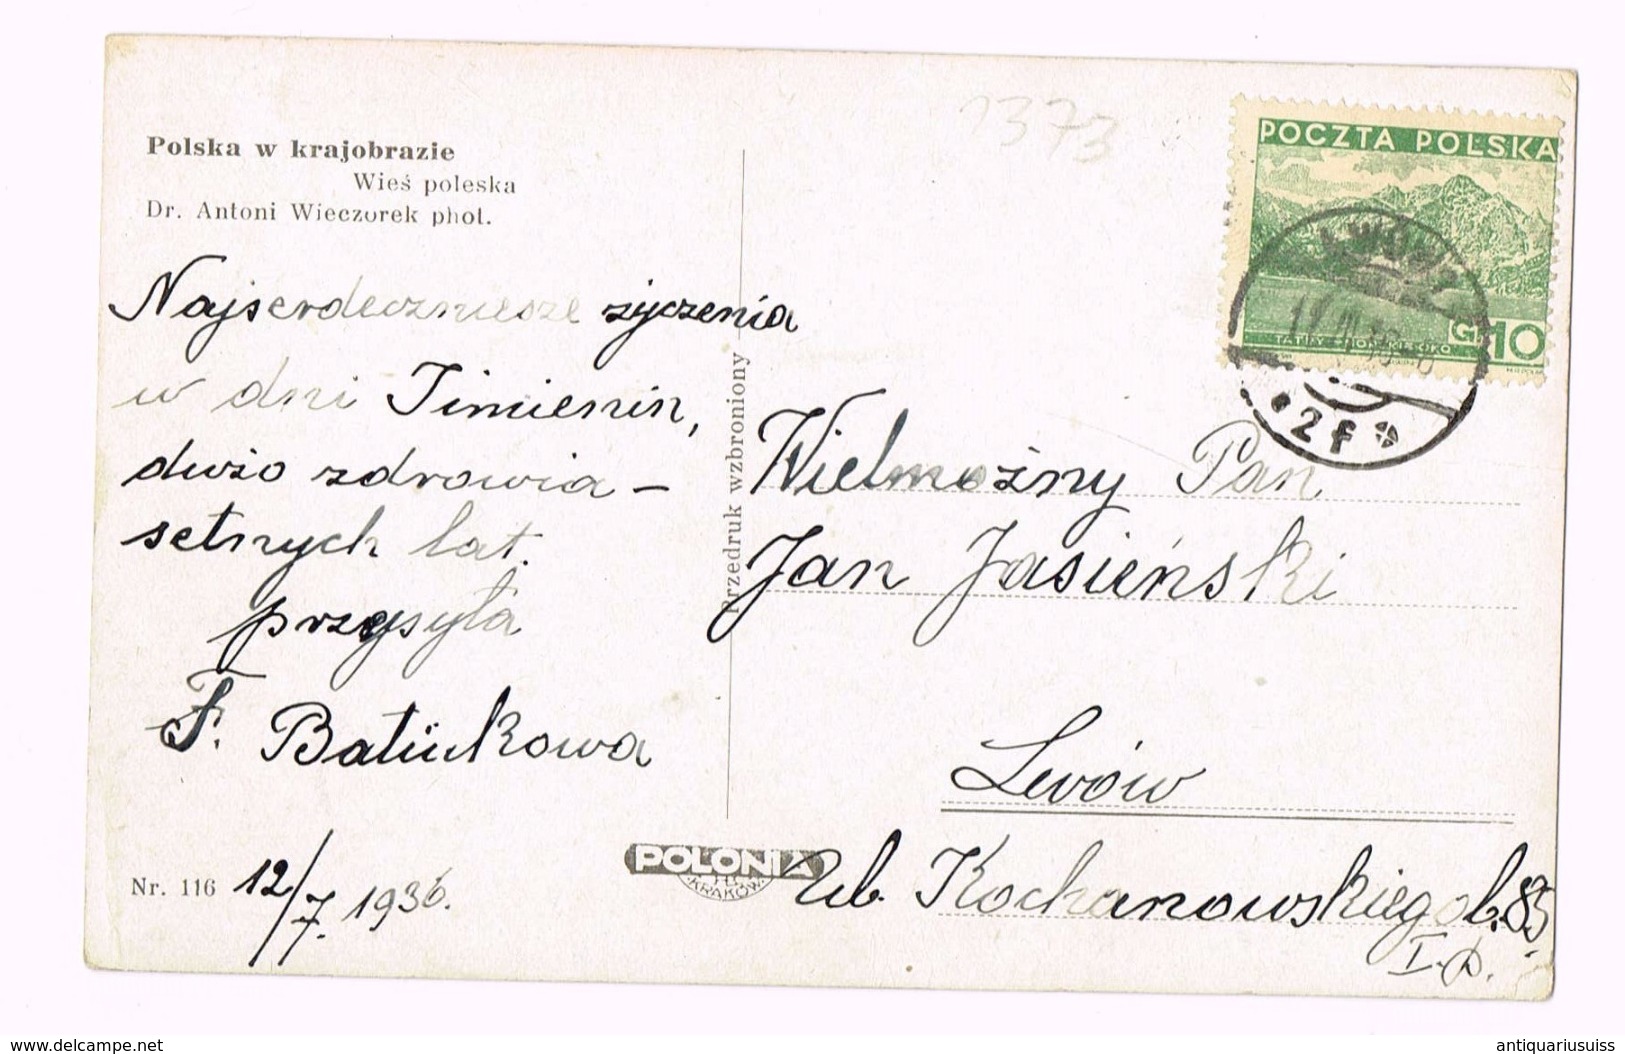 1373
POCZTA POLSKA
Polska w krajobrazie
Wieś poleska
Dr. Antoni Wieczorek phot.
Najserdeczniejsze życzenia
w dni Imienin,
dużo zdrowia –
setnych lat.
przysyła
F. Batiukowa
Nr. 116 12/7. 1936.
Przedruk wzbroniony
POLONIA
KRAKÓW
GR 10
LWÓW
2f
Wielmożny Pan
Jan Jasieński
Lwów
Ul. Kochanowskiego l. 85.
I. p.
www.delcampe.net
antiquariusuiss